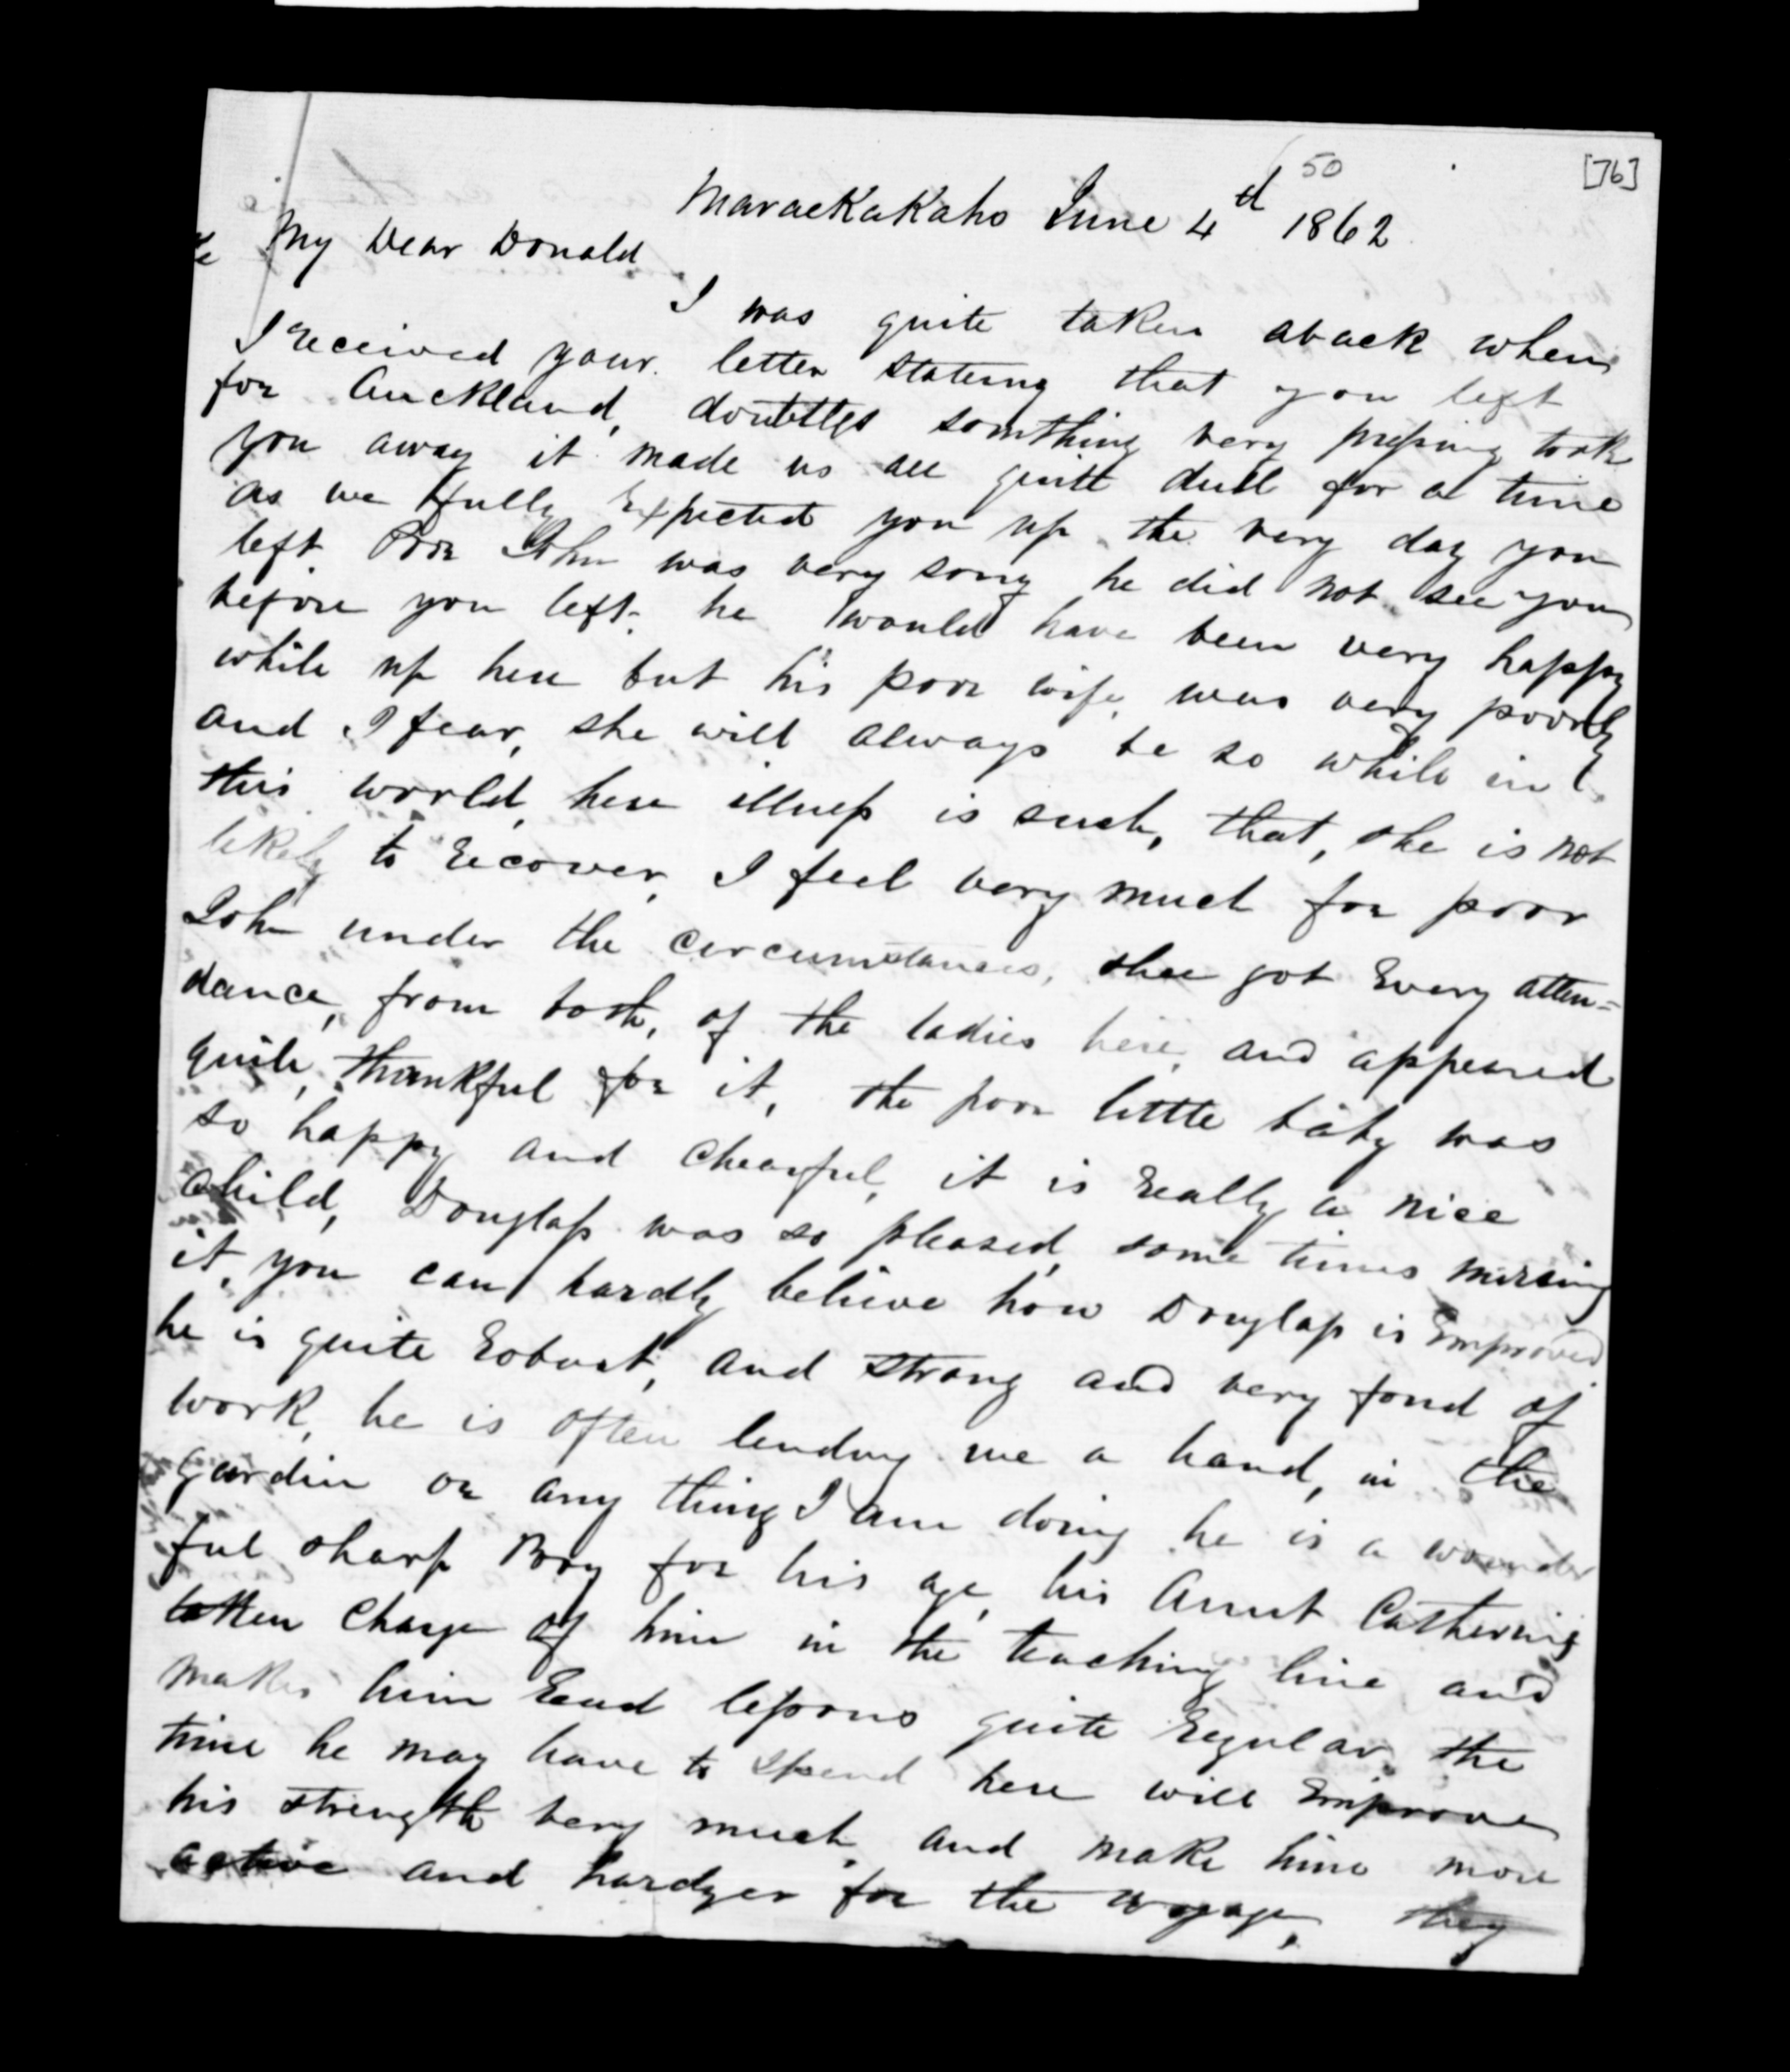 50
[76]
MaraeKaKaho June 4th 1862
My Dear Donald
I was quite taken aback when
I received your letter stateing that you left
for Auckland, doubtless somthing very pressing took
you away it made us all quite dull for a time
as we fully Expected you up the very day you
left Poor John was very sorry he did not see you
before you left. he would have been very happy
while up here but his poor wife was very poorly
and I fear, she will always be so while in
this world, here illness is such, that, she is not
likely to recover, I feel very much for poor
John under the circumstances, shee got Every atten=
dance, from both, of the ladies here, and appeared
quite, thankful for it, the poor little baby was
so happy and chearful, it is really a nice
child, Douglass was so pleased, some times nursing
it, you can hardly believe how Douglass is Emproved
he is quite robust, and strong and very fond of
work, he is often lending me a hand, in the
gardin or any thing I am doing he is a wounder
ful sharp Boy for his age, his Aunt Catherine
taken charge of him in the teaching line and
makes him read lessons quite regular, the
time he may have to spend here will Emprove
his strength very much, and make him more
active and hardyer for the voyage, they